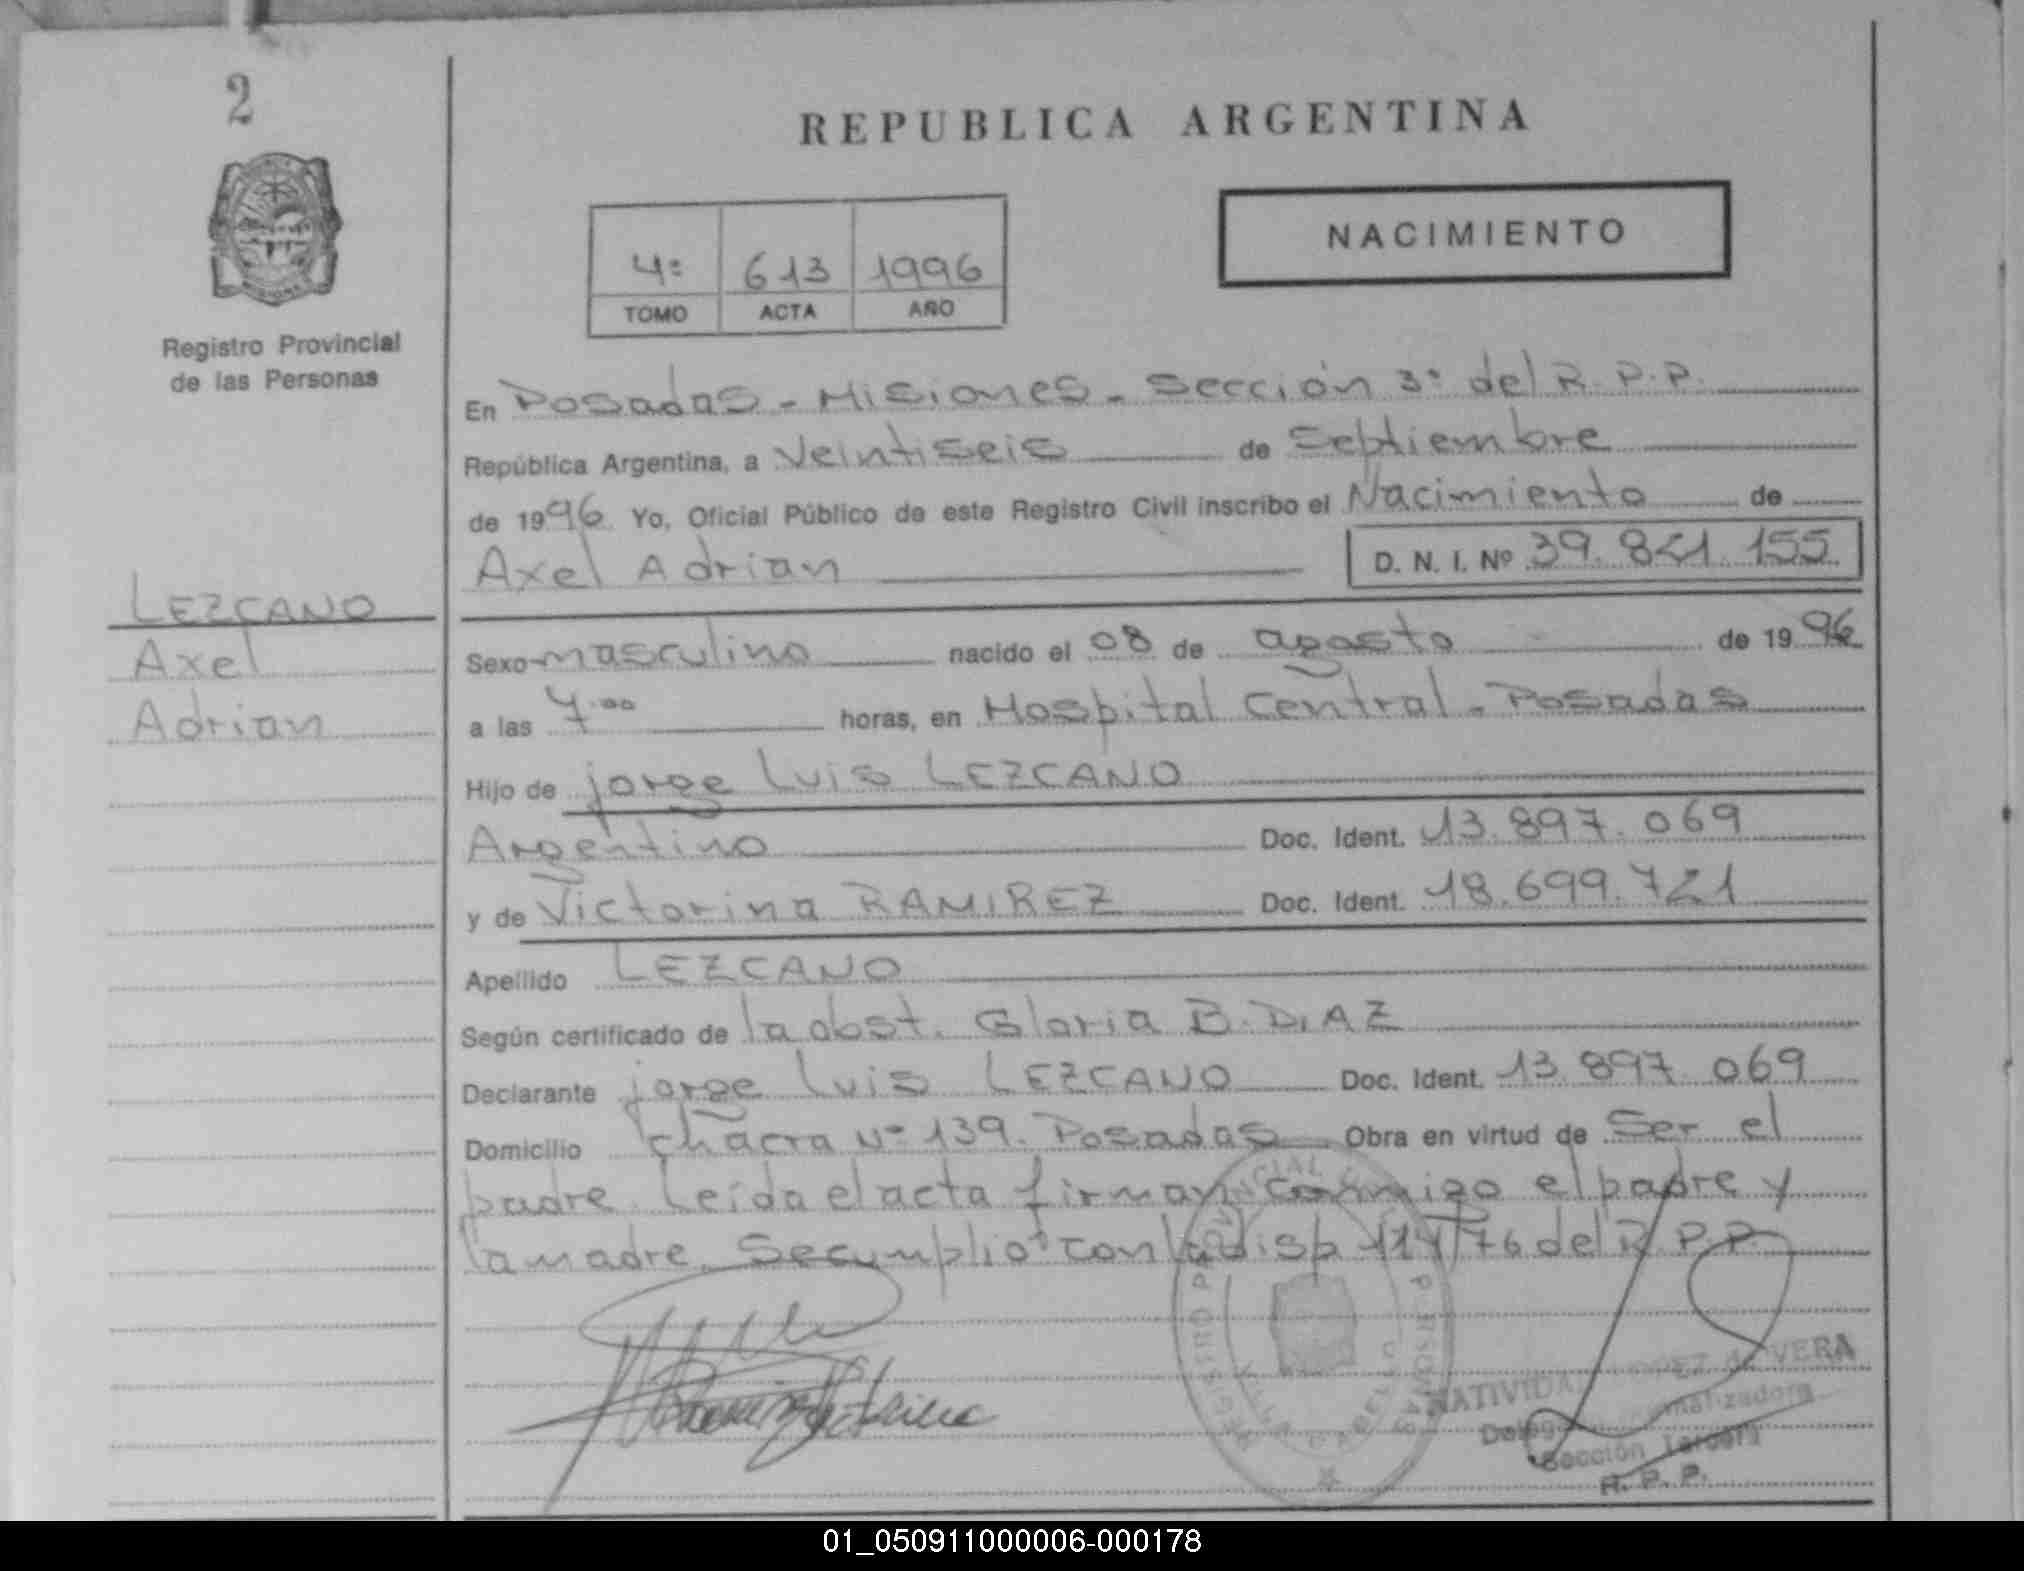 2
REPUBLICA ARGENTINA
NACIMIENTO
4º 613 1996
TOMO ACTA AÑO
Registro Provincial
de las Personas
En Posadas - Misiones - Sección 3º del R.P.P.
República Argentina, a Veintiseis de Septiembre
de 1996 Yo, Oficial Público de este Registro Civil inscribo el Nacimiento de
Axel Adrian D. N. I. Nº 39.821.155
LEZCANO
Axel
Adrian
Sexo masculino nacido el 08 de agosto de 1996
a las 7.00 horas, en Hospital Central - Posadas
Hijo de jorge Luis LEZCANO
Argentino Doc. Ident. 13.897.069
y de Victorina RAMIREZ Doc. Ident. 18.699.721
Apellido LEZCANO
Según certificado de la obst. Gloria B. DIAZ
Declarante jorge Luis LEZCANO Doc. Ident. 13.897.069
Domicilio chacra Nº 139. Posadas Obra en virtud de Ser el
padre. Leída el acta firman conmigo el padre y
la madre. Se cumplió con la disp 114/76 del R.P.P.
NATIVIDAD de VERA
Sección Tercera
R. P. P.
01_050911000006-000178